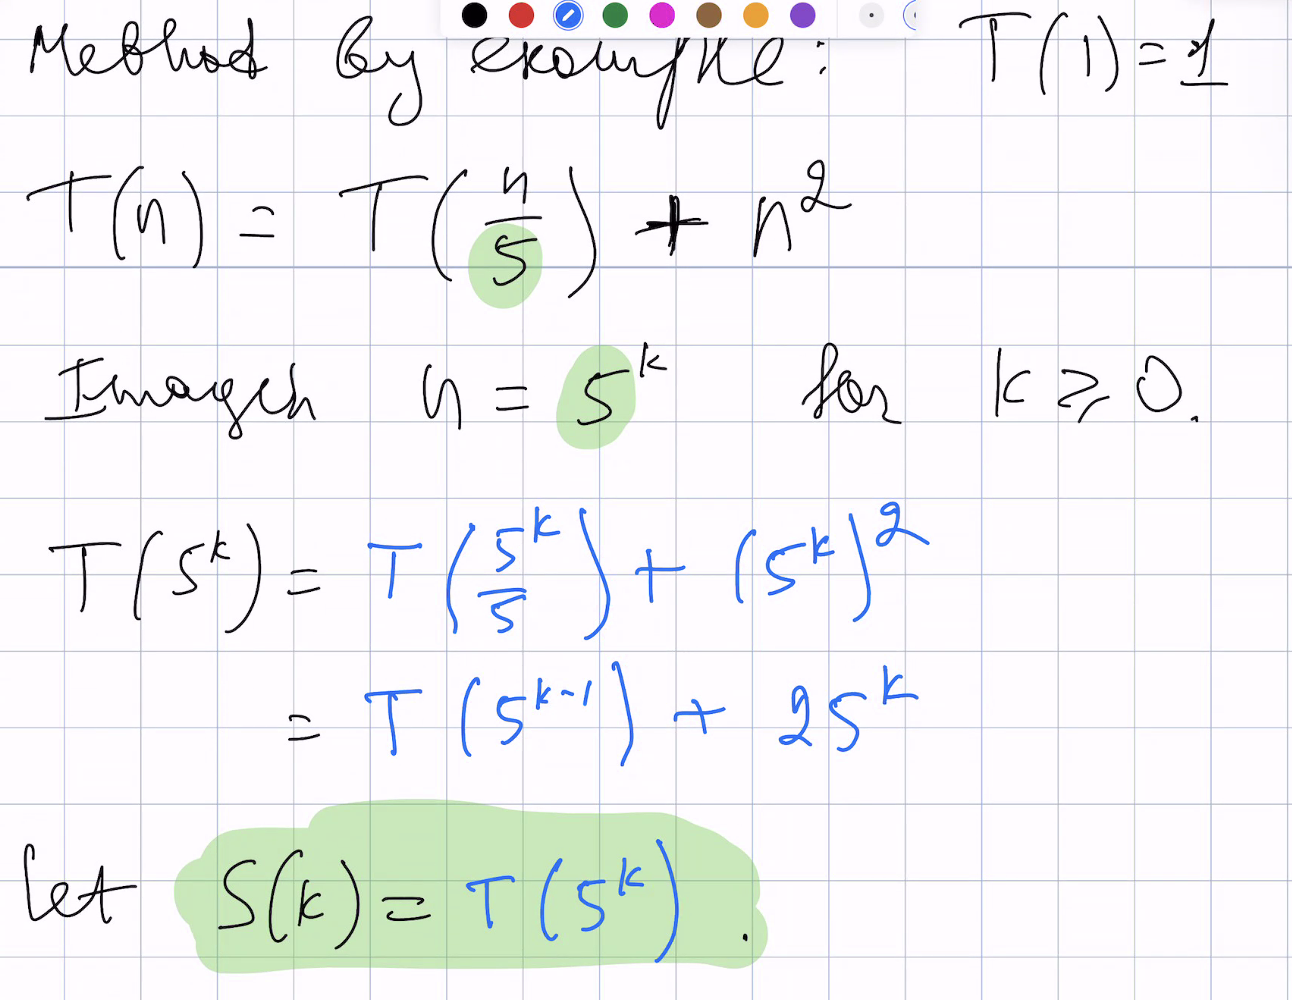 Method by example: T(1)=1
T(n) = T(n/5) + n²
Imagen n = 5^k for k ≥ 0.
T(5^k) = T(5^k/5) + (5^k)²
= T(5^(k-1)) + 25^k
Let S(k) = T(5^k).